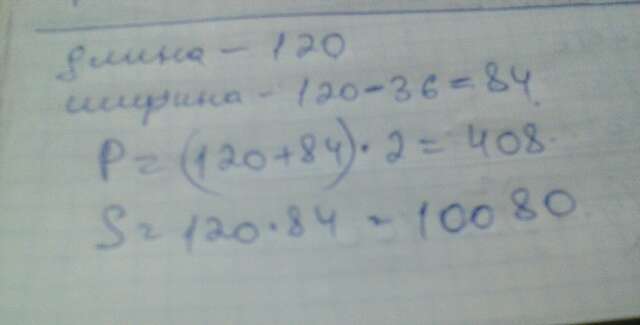 длина - 120
ширина - 120-36=84
P=(120+84)·2=408.
S=120·84=10080